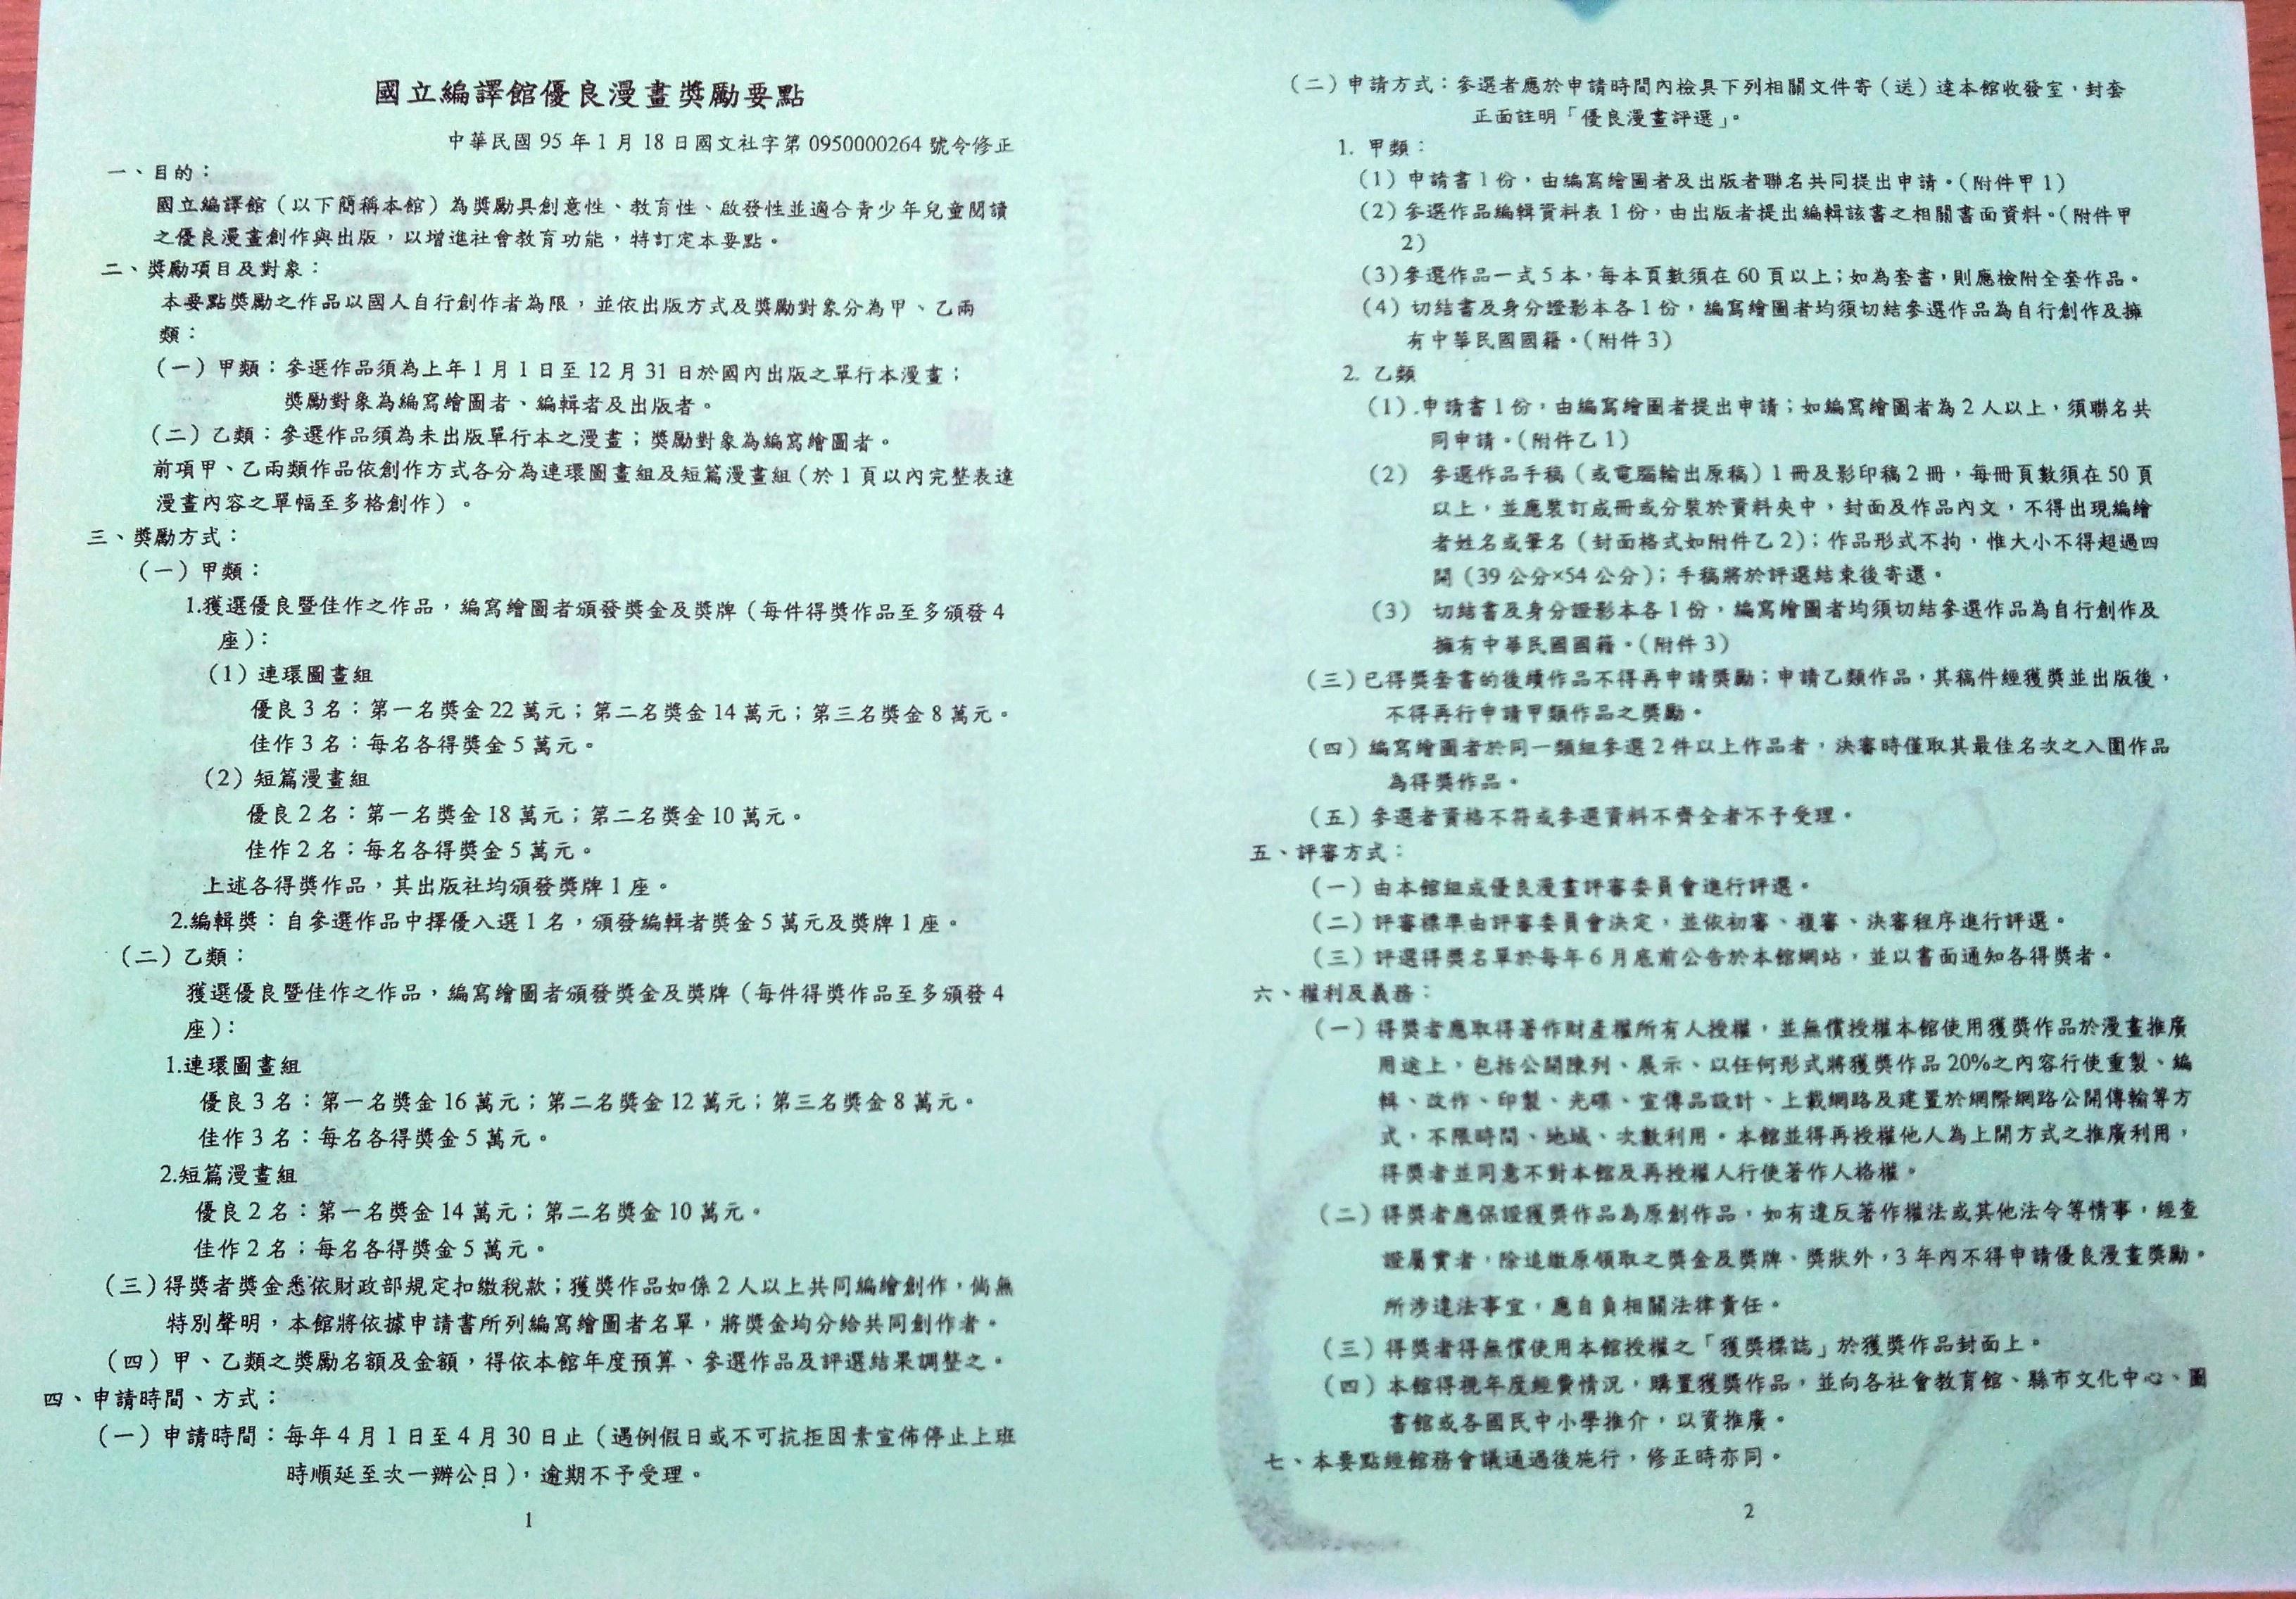 國立編譯館優良漫畫獎勵要點
中華民國 95 年 1 月 18 日國文社字第 0950000264 號令修正
一、目的：
國立編譯館（以下簡稱本館）為獎勵具創意性、教育性、啟發性並適合青少年兒童閱讀
之優良漫畫創作與出版，以增進社會教育功能，特訂定本要點。
二、獎勵項目及對象：
本要點獎勵之作品以國人自行創作者為限，並依出版方式及獎勵對象分為甲、乙兩
類：
（一）甲類：參選作品須為上年 1 月 1 日至 12 月 31 日於國內出版之單行本漫畫；
獎勵對象為編寫繪圖者、編輯者及出版者。
（二）乙類：參選作品須為未出版單行本之漫畫；獎勵對象為編寫繪圖者。
前項甲、乙兩類作品依創作方式各分為連環圖畫組及短篇漫畫組（於 1 頁以內完整表達
漫畫內容之單幅至多格創作）。
三、獎勵方式：
（一）甲類：
1.獲選優良暨佳作之作品，編寫繪圖者頒發獎金及獎牌（每件得獎作品至多頒發 4
座）：
（1）連環圖畫組
優良 3 名：第一名獎金 22 萬元；第二名獎金 14 萬元；第三名獎金 8 萬元。
佳作 3 名：每名各得獎金 5 萬元。
（2）短篇漫畫組
優良 2 名：第一名獎金 18 萬元；第二名獎金 10 萬元。
佳作 2 名：每名各得獎金 5 萬元。
上述各得獎作品，其出版社均頒發獎牌 1 座。
2.編輯獎：自參選作品中擇優入選 1 名，頒發編輯者獎金 5 萬元及獎牌 1 座。
（二）乙類：
獲選優良暨佳作之作品，編寫繪圖者頒發獎金及獎牌（每件得獎作品至多頒發 4
座）：
1.連環圖畫組
優良 3 名：第一名獎金 16 萬元；第二名獎金 12 萬元；第三名獎金 8 萬元。
佳作 3 名：每名各得獎金 5 萬元。
2.短篇漫畫組
優良 2 名：第一名獎金 14 萬元；第二名獎金 10 萬元。
佳作 2 名；每名各得獎金 5 萬元。
（三）得獎者獎金悉依財政部規定扣繳稅款；獲獎作品如係 2 人以上共同編繪創作，倘無
特別聲明，本館將依據申請書所列編寫繪圖者名單，將獎金均分給共同創作者。
（四）甲、乙類之獎勵名額及金額，得依本館年度預算、參選作品及評選結果調整之。
四、申請時間、方式：
（一）申請時間：每年 4 月 1 日至 4 月 30 日止（遇例假日或不可抗拒因素宣佈停止上班
時順延至次一辦公日），逾期不予受理。
1
（二）申請方式：參選者應於申請時間內檢具下列相關文件寄（送）達本館收發室，封套
正面註明「優良漫畫評選」。
1. 甲類：
（1）申請書 1 份，由編寫繪圖者及出版者聯名共同提出申請。（附件甲 1）
（2）參選作品編輯資料表 1 份，由出版者提出編輯該書之相關書面資料。（附件甲
2）
（3）參選作品一式 5 本，每本頁數須在 60 頁以上；如為套書，則應檢附全套作品。
（4）切結書及身分證影本各 1 份，編寫繪圖者均須切結參選作品為自行創作及擁
有中華民國國籍。（附件 3）
2. 乙類
（1）申請書 1 份，由編寫繪圖者提出申請；如編寫繪圖者為 2 人以上，須聯名共
同申請。（附件乙 1）
（2） 參選作品手稿（或電腦輸出原稿）1 冊及影印稿 2 冊，每冊頁數須在 50 頁
以上，並應裝訂成冊或分裝於資料夾中，封面及作品內文，不得出現編繪
者姓名或筆名（封面格式如附件乙 2）；作品形式不拘，惟大小不得超過四
開（39 公分×54 公分）；手稿將於評選結束後寄還。
（3） 切結書及身分證影本各 1 份，編寫繪圖者均須切結參選作品為自行創作及
擁有中華民國國籍。（附件 3）
（三）已得獎套書的後續作品不得再申請獎勵；申請乙類作品，其稿件經獲獎並出版後，
不得再行申請甲類作品之獎勵。
（四）編寫繪圖者於同一類組參選 2 件以上作品者，決審時僅取其最佳名次之入圍作品
為得獎作品。
（五）參選者資格不符或參選資料不齊全者不予受理。
五、評審方式：
（一）由本館組成優良漫畫評審委員會進行評選。
（二）評審標準由評審委員會決定，並依初審、複審、決審程序進行評選。
（三）評選得獎名單於每年 6 月底前公告於本館網站，並以書面通知各得獎者。
六、權利及義務：
（一）得獎者應取得著作財產權所有人授權，並無償授權本館使用獲獎作品於漫畫推廣
用途上，包括公開陳列、展示、以任何形式將獲獎作品 20%之內容行使重製、編
輯、改作、印製、光碟、宣傳品設計、上載網路及建置於網際網路公開傳輸等方
式，不限時間、地域、次數利用。本館並得再授權他人為上開方式之推廣利用，
得獎者並同意不對本館及再授權人行使著作人格權。
（二）得獎者應保證獲獎作品為原創作品，如有違反著作權法或其他法令等情事，經查
證屬實者，除追繳原領取之獎金及獎牌、獎狀外，3 年內不得申請優良漫畫獎勵。
所涉違法事宜，應自負相關法律責任。
（三）得獎者得無償使用本館授權之「獲獎標誌」於獲獎作品封面上。
（四）本館得視年度經費情況，購置獲獎作品，並向各社會教育館、縣市文化中心、圖
書館或各國民中小學推介，以資推廣。
七、本要點經館務會議通過後施行，修正時亦同。
2